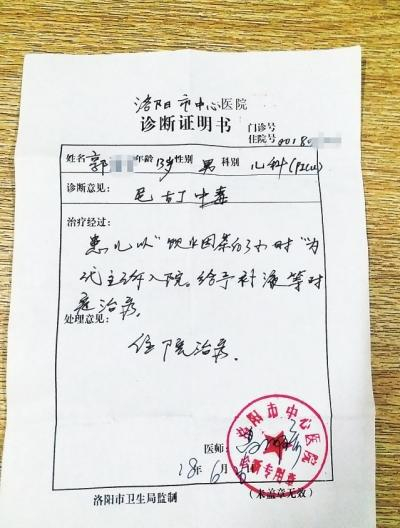 洛阳市中心医院
诊断证明书
门诊号
住院号 00180
姓名 郭 年龄 13岁 性别 男 科别 儿科(PICU)
诊断意见: 尼古丁中毒
治疗经过:
患儿以"饮 小时"为
代主诉入院。给予补液等对
症治疗。
处理意见:
住院治疗。
医师:
18年6月
洛阳市中心医院
诊断专用章
洛阳市卫生局监制
(未盖章无效)